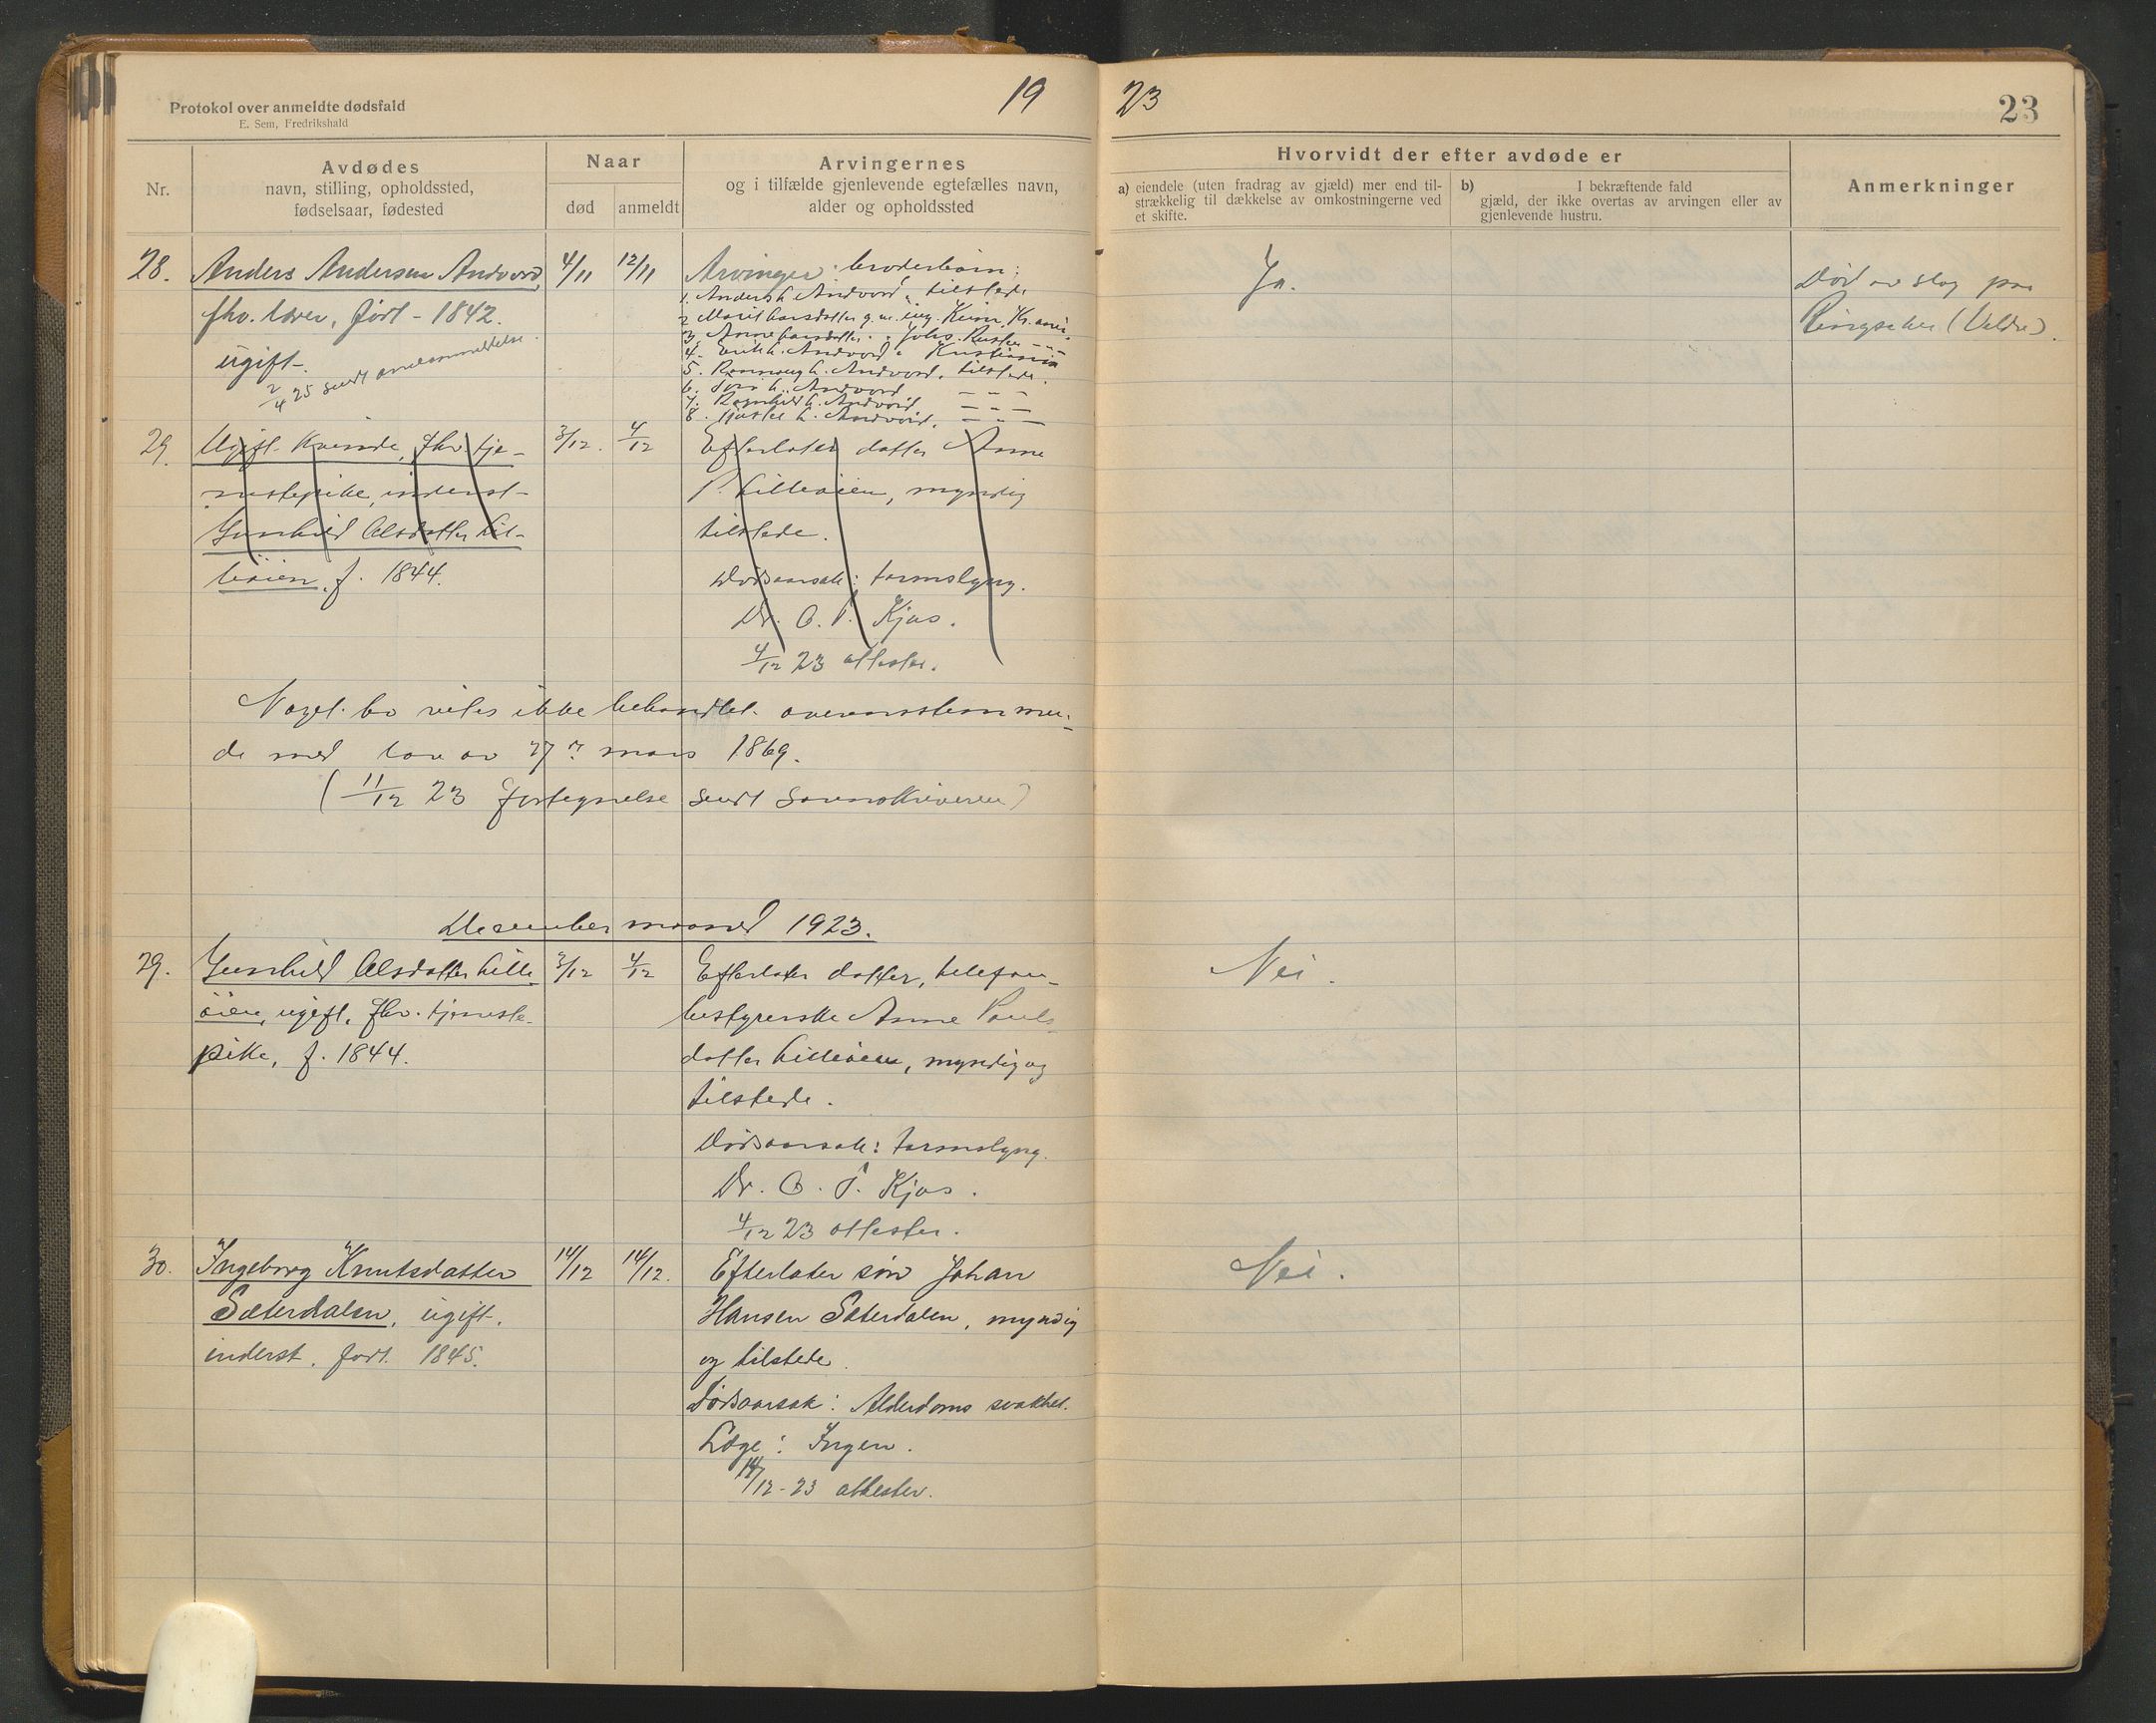 Protokol over anmeldte dødsfald
E. Sem, Fredrikshald
19
23
23
Nr.
Avdødes
navn, stilling, opholdssted,
fødselsaar, fødested
Naar
død
anmeldt
Arvingernes
og i tilfælde gjenlevende egtefælles navn,
alder og opholdssted
Hvorvidt der efter avdøde er
a) eiendele (uten fradrag av gjæld) mer end til-
strækkelig til dækkelse av omkostningerne ved
et skifte.
b) I bekræftende fald
gjæld, der ikke overtas av arvingen eller av
gjenlevende hustru.
Anmerkninger
28.
Anders Andersen Andvord,
fhv. lærer, født - 1842.
ugift.
2/4 25 sendt
4/11
12/11
Arvinger: broderbørn:
1. Anders L. Andvord, tilstede
2 Marit Larsdatter g. m. ing. Keim, Kr.ania
3. Anne Larsdatter " Johs. Ruster - " -
4. Erik L. Andvord " Kristiania
5. Rønnaug L. Andvord, tilstede.
6. L. Andvord - " -
7. Ragnhild L. Andvord, - " -
8. L. Andvord, - " -
Ja.
Død av slag paa
Ringsaker (Veldre).
29.
Ugift kvinde, fhv. tje-
nestepike, inderst-
Gunhild Olsdatter Lil-
leøien, f. 1844.
3/12.
4/12
Efterlater datter Anne
P. Lilleøien, myndig
tilstede.
Dødsaarsak: tarmslyng.
Dr. O. T. Kjos.
4/12 23 attester.
Noget bo vites ikke behandlet overensstemmen-
de med lov av 27. mars 1869.
(11/12 23 fortegnelse sendt sorenskriveren)
December maaned 1923.
29.
Gunhild Olsdatter Lille
øien, ugift, fhv. tjeneste-
pike, f. 1844.
3/12
4/12
Efterlater datter, telefon-
bestyrerske Anne Pauls-
datter Lilleøien, myndig og
tilstede.
Dødsaarsak: tarmslyng.
Dr. O. T. Kjos.
4/12 23 attester.
Nei.
30.
Ingeborg Knutsdatter
Sæterdalen, ugift,
inderst. født 1845.
14/12
14/12.
Efterlater søn Johan
Hansen Sæterdalen, myndig
og tilstede.
Dødsaarsak: Alderdoms svakhet.
Læge: Ingen.
14/12-23 attester.
Nei.